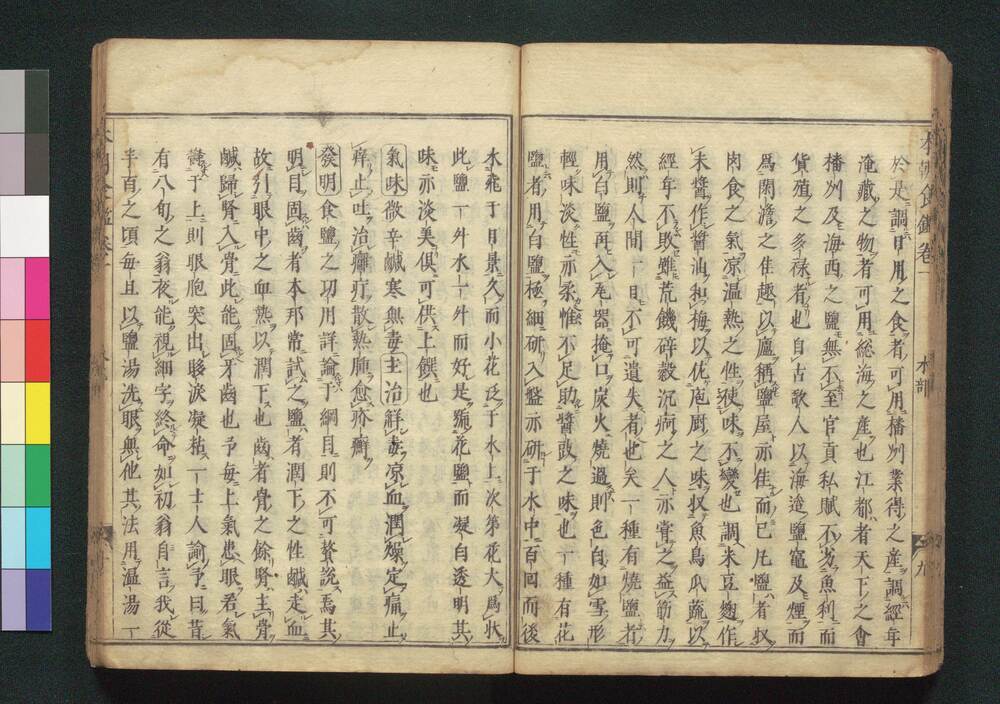 本朝食鑑卷一
水部
九
於是調日用之食者可用播州業得之産調經年
淹藏之物者可用総海之産也江都者天下之會
播州及海西之鹽無不至官貢私賦不劣魚利而
貨殖之多祿者也自古歌人以海邊鹽竈及煙而
爲閑澹之佳趣以廬稱鹽屋亦佳而已凡鹽者収
肉食之氣凉温熱之性使味不變也調米豆麴作
未醬作醬油和梅以佐庖厨之味収魚鳥瓜蔬以
經年不敗雖荒饑碎穀沉痾之人亦嘗之益筋力
然則人間一日不可遺失者也矣一種有燒鹽者
用白鹽再入瓦器掩口炭火燒過則色白如雪形
輕味淡性亦柔惟不足助醬豉之味也一種有花
鹽者用白鹽極細研入盤亦研于水中百回而後
水飛于日景久而小花泛于水上次第花大爲状
此鹽一升水一升而好是號花鹽而凝白透明其
味亦淡美倶可供上饌也
氣味微辛鹹寒無毒主治觧毒凉血潤燥定痛止
痒止吐治癎疔散熱腫愈疥癬
發明食鹽之功用詳論于綱目則不可贅説焉其
明目固齒者本邦常試之鹽者潤下之性鹹走血
故引眼中之血熱以潤下也齒者骨之餘腎主骨
鹹歸腎入骨此能固牙齒也予毎上氣患眼若氣
于上則眼胞突出眵淚凝粘一士人諭予曰昔
有八旬之翁夜能視細字終命如初翁自言我從
半百之頃毎旦以鹽湯洗眼無他其法用温湯一